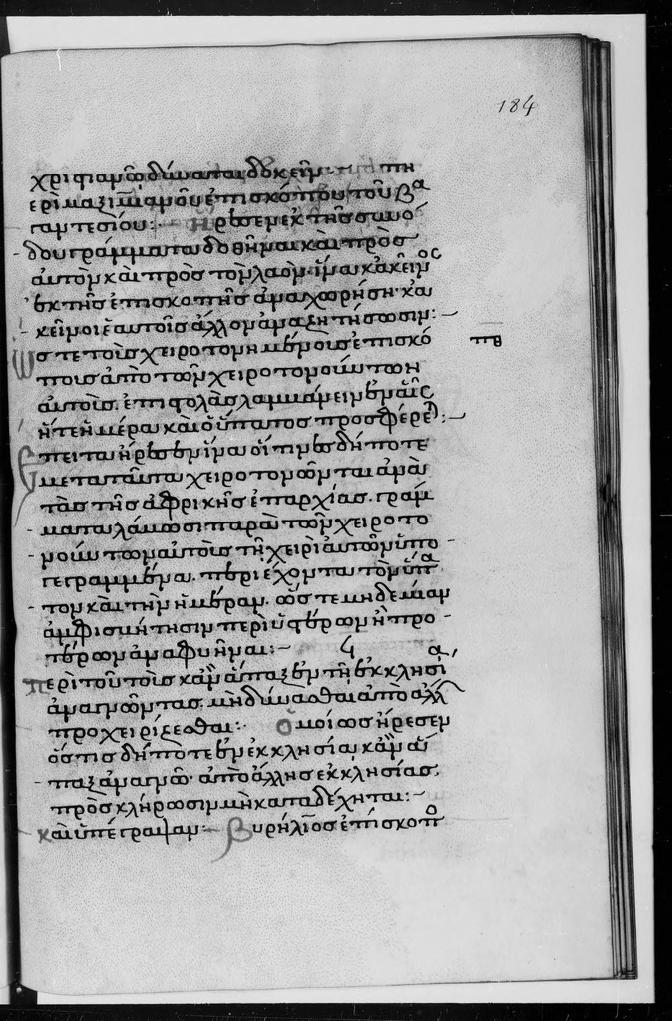 184
χριστιανῶ δύναται δοκεῖν·       πη
ερὶ μαξιμιανοῦ ἐπισκόπου τοῦ βα
γαητεσίου:· Ἤρεσεν ἐκ τῆς συνό
δου γράμματα δοθῆναι καὶ πρὸς
αὐτὸν καὶ πρὸς τὸν λαὸν· ἵνα κἀκεῖνος
ἐκ τῆς ἐπισκοπῆς ἀναχωρήση· κἀ
κεῖνοι ἑαυτοῖς ἄλλον ἀναζητήσωσιν:
Ὥστε τοὺς χειροτονημένοις ἐπισκό       πθ
ποις ἀπὸ τῶν χειροτονούντων
αὐτοὺς, ἐπιστολὰς λαμβάνειν ἐν αἷς
ἥ τε ἡμέρα καὶ ὁ ὕπατος προσφέρετ:
Ἔπειτα ἤρεσεν ἵνα οἵτινες δήποτε
μετὰ ταῦτα χειροτονῶνται ἀνὰ
τὰς τῆς ἀφρικῆς ἐπαρχίας, γράμ
ματα λάβωσι παρὰ τῶν χειροτο
νούντων αὐτοὺς τῇ χειρὶ αὐτῶν ὑπο
γεγραμμένα, περιέχοντα τὸν ὕπα
τον καὶ τὴν ἡμέραν, ὥστε μηδεμίαν
ἀμφισβήτησιν περὶ ὑστέρων ἢ προ
τέρων ἀναφυῆναι:       ϟ
Περὶ τοῦ τοὺς κἂν ἅπαξ ἐν τῇ ἐκκλησία
ἀναγνῶντας, μὴ δύνασθαι ἀπὸ ἄλλ
προχειρίζεσθαι: Ὁμοίως ἤρεσεν
ὅστις δήποτε ἐν ἐκκλησία κἂν ἅ
παξ ἀναγνῶ· ἀπὸ ἄλλης ἐκκλησίας,
πρὸς κλήρωσιν μὴ καταδέχηται:
καὶ ὑπέγραψαν: Αὐρήλιος ἐπίσκοπο